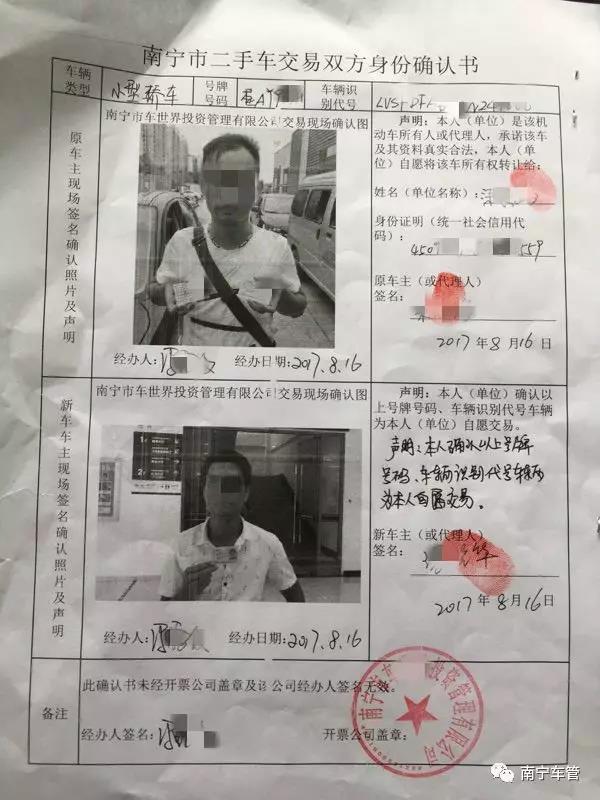 南宁市二手车交易双方身份确认书
车辆类型
小型轿车
号牌号码
车辆识别代号
南宁市车世界投资管理有限公司交易现场确认图
原车主现场签名确认照片及声明
经办人:
经办日期:2017.8.16
声明:本人(单位)是该机
动车所有人或代理人,承诺该车
及其资料真实合法,本人(单
位)自愿将该车所有权转让给:
姓名(单位名称):
身份证明(统一社会信用代
码):
4509 559
原车主(或代理人)
签名:
2017年8月16日
南宁市车世界投资管理有限公司交易现场确认图
新车车主现场签名确认照片及声明
经办人:
经办日期:2017.8.16
声明:本人(单位)确认以
上号牌号码、车辆识别代号车辆
为本人(单位)自愿交易。
声明:本人确认以上号牌
号码、车辆识别代号车辆
为本人自愿交易。
新车主(或代理人)
签名:
2017年8月16日
备注
此确认书未经开票公司盖章及该公司经办人签名无效。
经办人签名:
开票公司盖章:
南宁市 投资管理有限公司
南宁车管